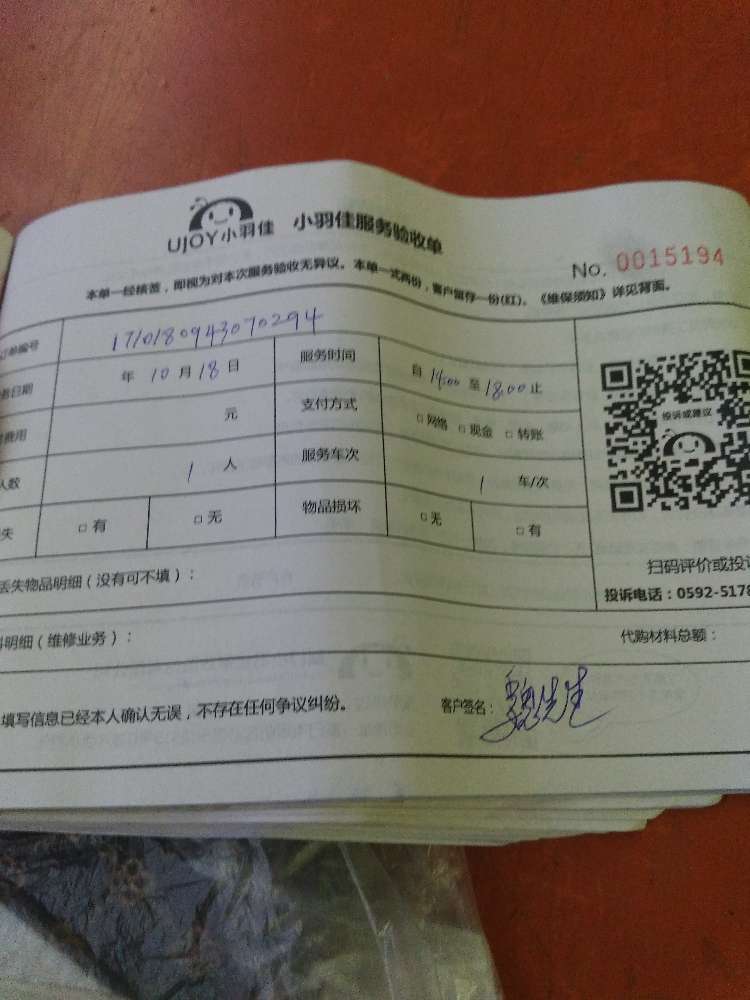 UJOY小羽佳 小羽佳服务验收单
No. 0015194
本单一经核签，即视为对本次服务验收无异议。本单一式两份，客户留存一份(红)。《维保须知》详见背面。
订单编号 1710180943070294
日期 年 10 月 18 日 服务时间 自 14:00 至 18:00 止
费用 元 支付方式 □ 网络 □ 现金 □ 转账
人数 1 人 服务车次 1 车/次
失 □ 有 □ 无 物品损坏 □ 无 □ 有
投诉或建议
扫码评价或投诉
投诉电话：0592-5178
丢失物品明细（没有可不填）：
料明细（维修业务）： 代购材料总额：
填写信息已经本人确认无误，不存在任何争议纠纷。 客户签名： 魏先生